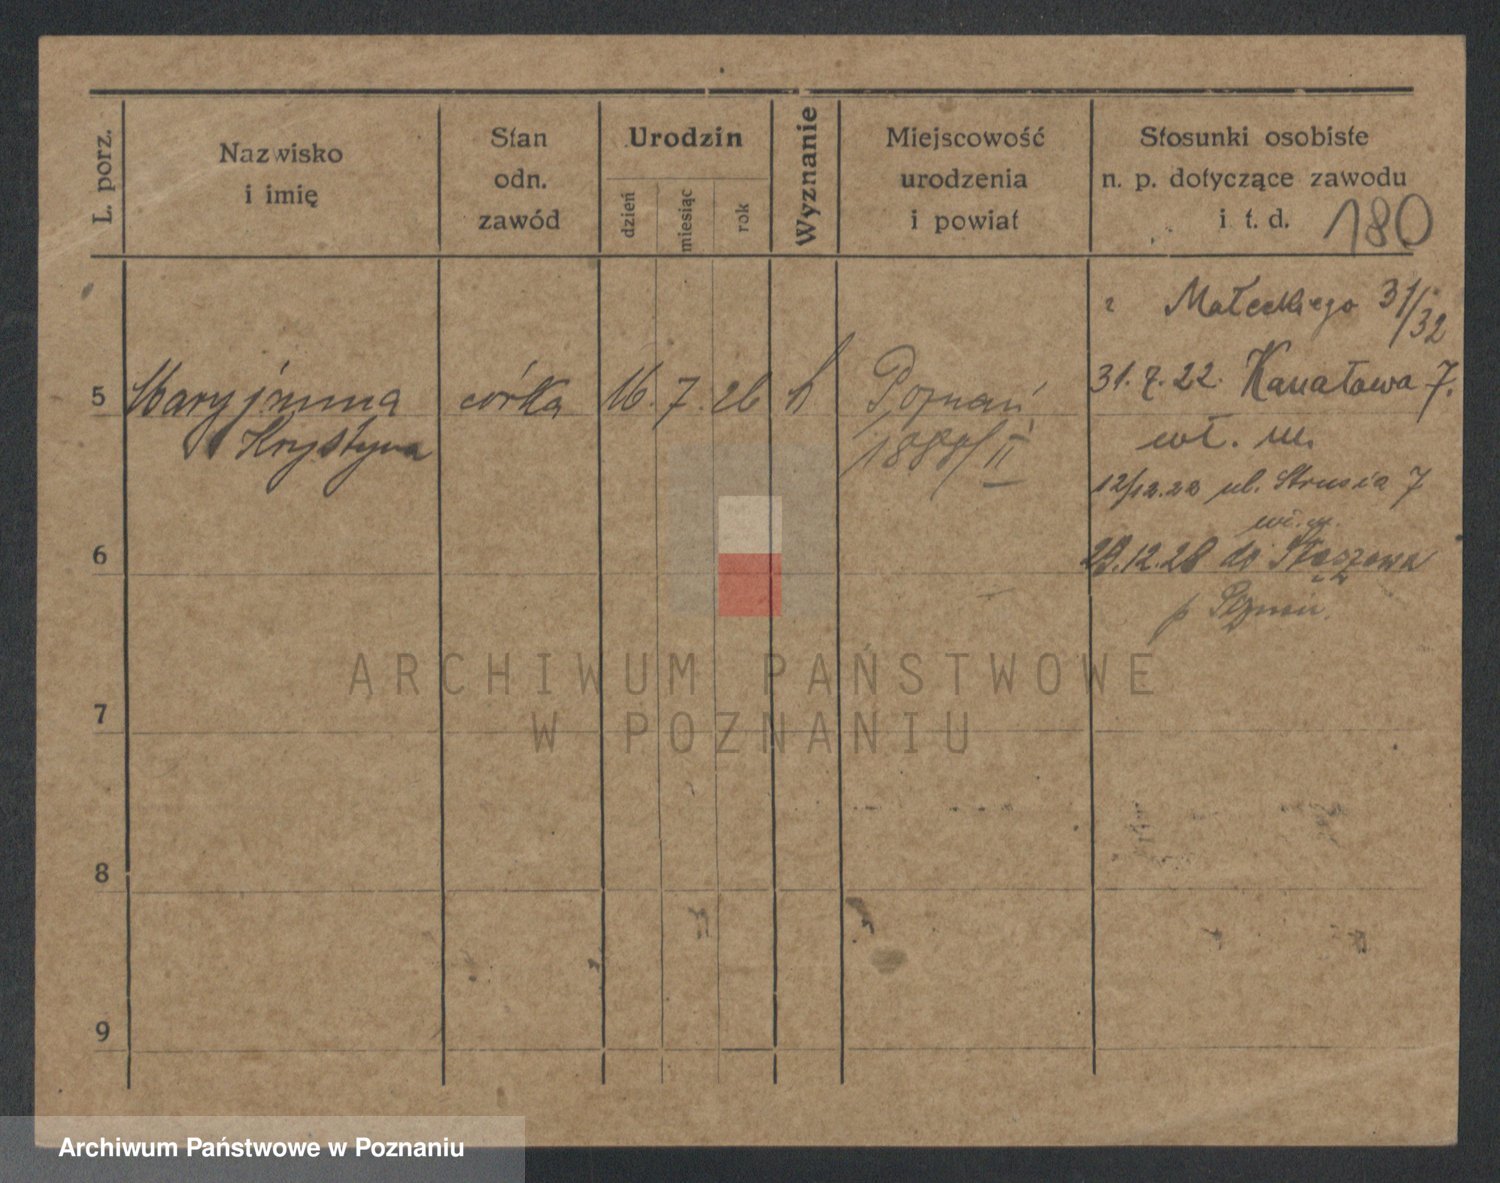 L. porz.
Nazwisko
i imię
Stan
odn.
zawód
Urodzin
dzień
miesiąc
rok
Wyznanie
Miejscowość
urodzenia
i powiat
Stosunki osobiste
n. p. dotyczące zawodu
i t. d.
180
Małeckiego 31/32
31. 7. 22. Kanałowa 7.
wł. m.
5
córka
16. 7. 26
Poznań
Krystyna
II
12/12.22 ul. Strusia 7
6
29.12.28 do
p
ARCHIWUM PAŃSTWOWE
W POZNANIU
7
8
9
Archiwum Państwowe w Poznaniu